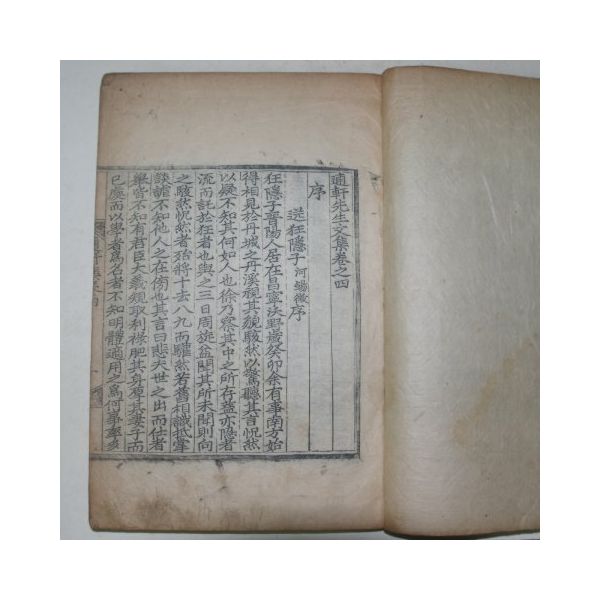 適軒先生文集卷之四
序
送狂隱子河錫徵序
狂隱子晉陽人居在昌寧沃野歲癸卯余有事南方始
得相見於丹城之丹溪視其貌駭然以驚聽其言怳然
以疑不知其何如人也徐乃察其中之所存蓋亦隱者
流而託於狂者也與之三日周旋益聞其所未聞則向
之駭然怳然者殆將十去八九而驩然若舊相識抵掌
談謔不知他人之在傍也其言曰悲夫世之出而仕者
擧皆不知有君臣大義規取利祿肥其身厚其妻子而
已處而以學者爲名者不知明體適用之爲何事率多